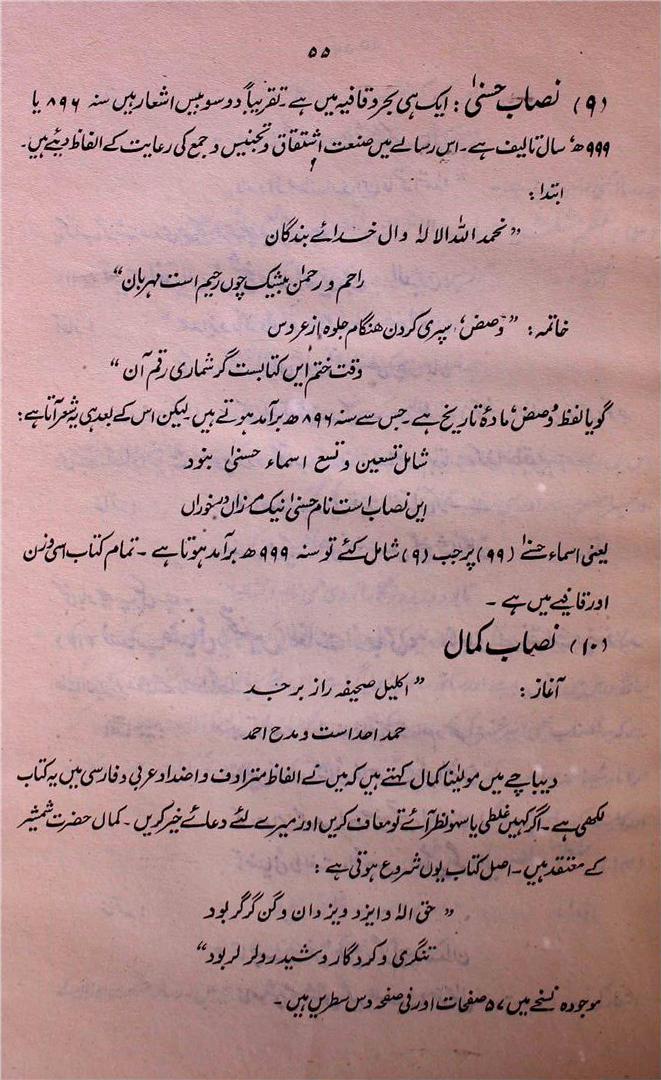 ۵۵
(۹) نصاب حسنیٰ : ایک ہی بحر و قافیہ میں ہے۔ تقریباً دو سو بیس اشعار ہیں سنہ ۸۹۶ یا
۹۹۹ھ سال تالیف ہے۔ اس رسالے میں صنعت اشتقاق و تجنیس و جمع کی رعایت کے الفاظ دیئے ہیں۔
ابتدا :
” نحمد اللہ الا لہٰ وال خدائے بندگان
راحم و رحمٰن بیشیک چوں رحیم است مہربان“
خاتمہ : ” وصض، سپری کردن ھنگام جلوہ از عروس
وقت ختم ایں کتابست گر شماری رقم آن “
گویا لفظ وصض، مادۂ تاریخ ہے۔ جس سے سنہ ۸۹۶ھ برآمد ہوتے ہیں۔ لیکن اس کے بعد ہی یہ شعر آتا ہے :
شامل تسعین و تسع اسماء حسنیٰ بنود
ایں نصاب است نام حسنیٰ نیک
یعنی اسماء حسنےٰ (۹۹) پر جب (۹) شامل کئے تو سنہ ۹۹۹ھ برآمد ہوتا ہے۔ تمام کتاب اسی وزن
اور قافیے میں ہے ۔
(۱۰) نصاب کمال
آغاز : ” اکلیل صحیفہ راز برجد
حمد احد است و مدح احمد
دیباچے میں مولٰینا کمال کہتے ہیں کہ میں نے الفاظ مترادف و اضداد عربی و فارسی میں یہ کتاب
لکھی ہے۔ اگر کہیں غلطی یا سہو نظر آئے تو معاف کریں اور میرے لئے دعائے خیر کریں۔ کمال حضرت شمشیر
کے معتقد ہیں۔ اصل کتاب یوں شروع ہوتی ہے :
” حق الہٰ و ایزد و یزدان و گن گرگر بود
تنگری و کردگار و شیدر و لر لر بود“
موجودہ نسخے میں ۵۷ صفحات اور فی صفحہ دس سطریں ہیں ۔